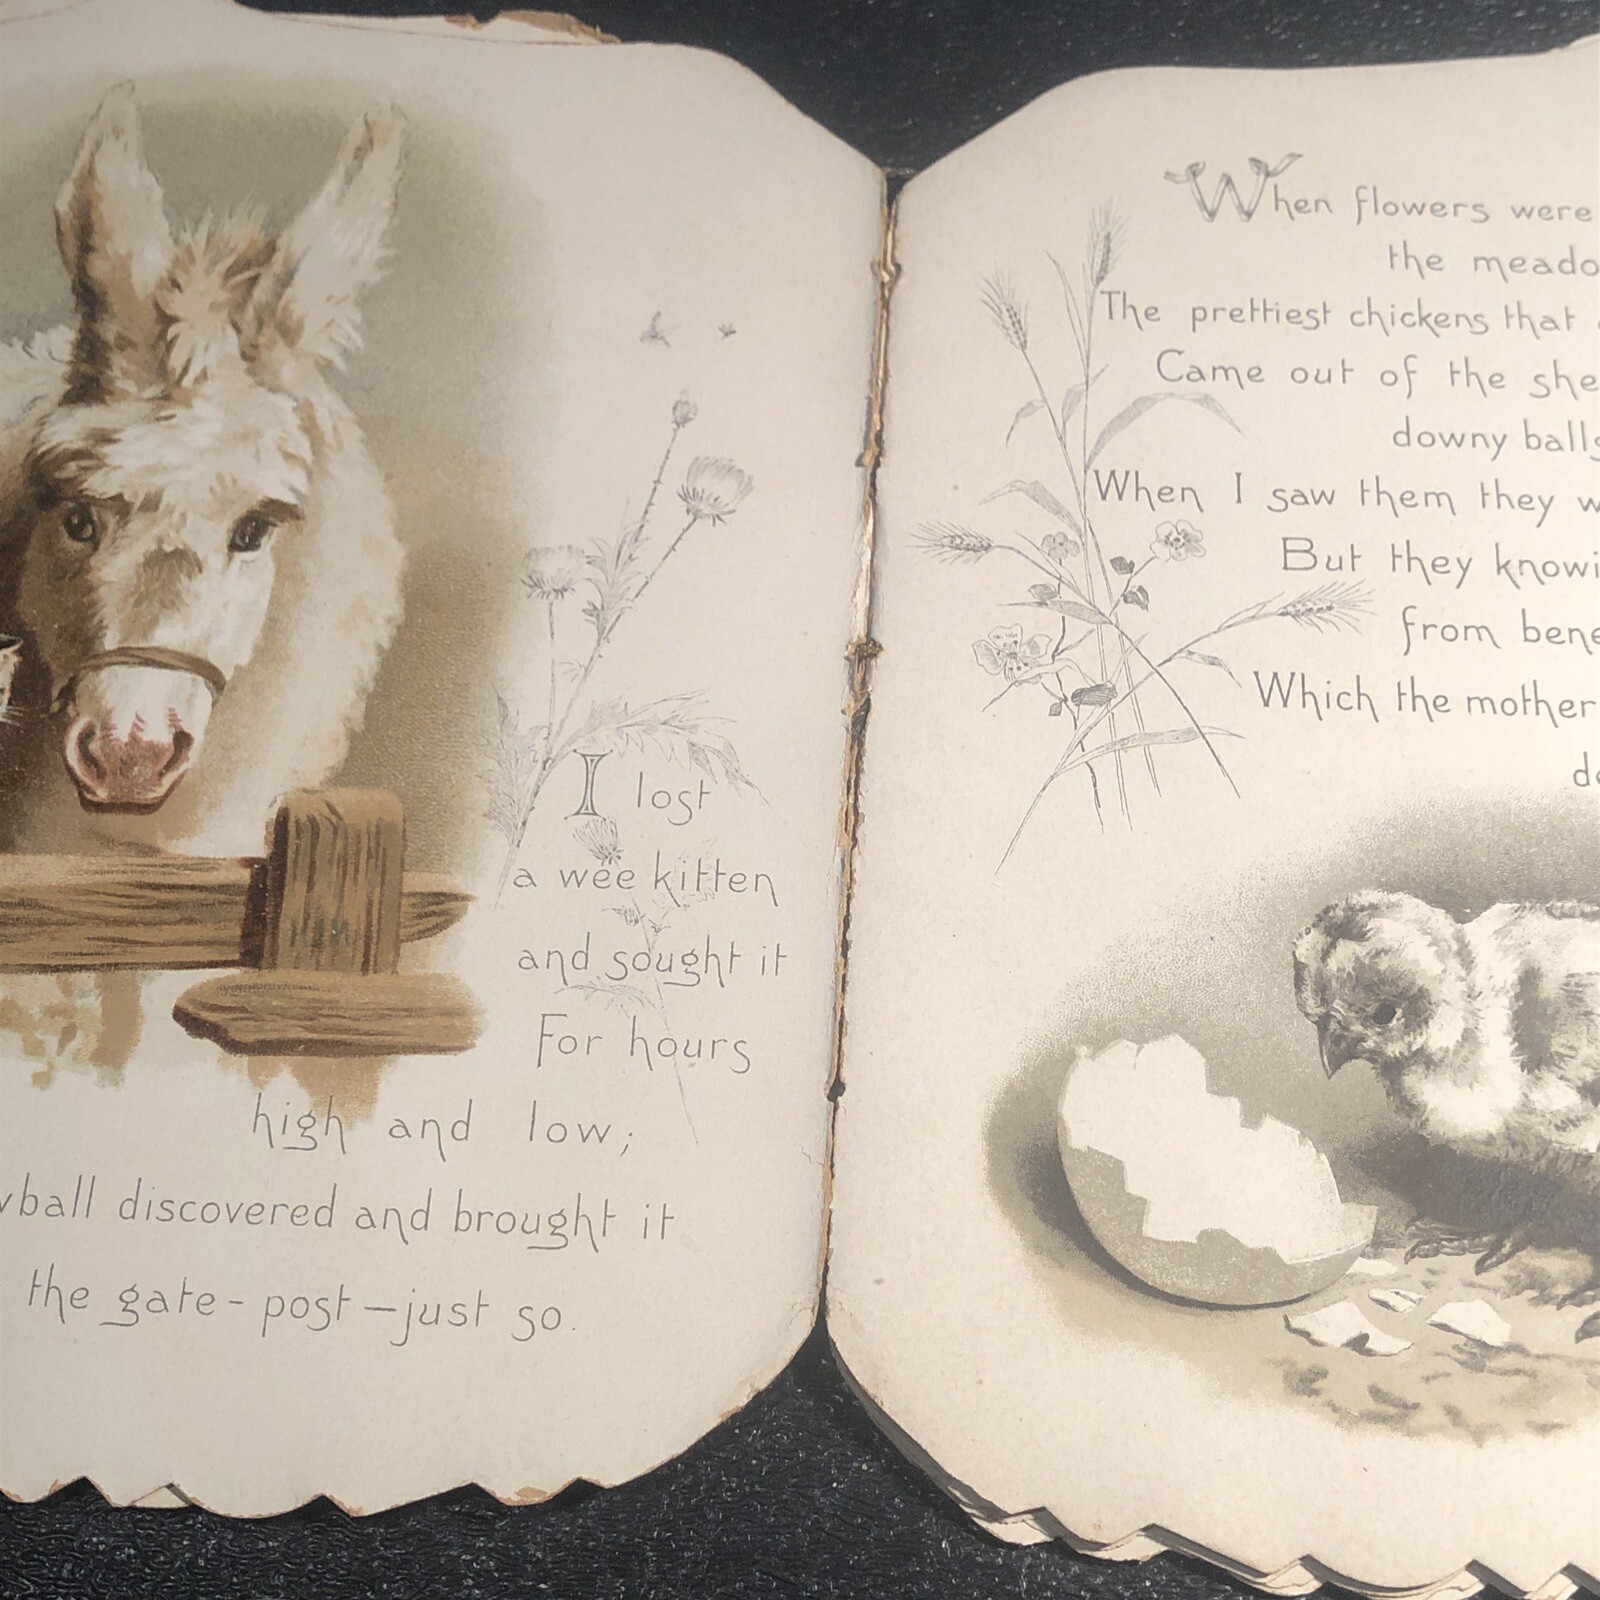 I lost
a wee kitten
and sought it
For hours
high and low;
discovered and brought it
the gate-post—just so.
When flowers were
the
The prettiest chickens that
Came out of the
downy
When I saw them they
But they
from
Which the mother